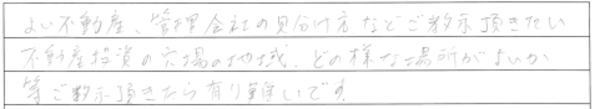 よい不動産、管理会社の見分け方などご教示頂きたい
不動産投資の穴場の地域、どの様な場所がよいか
等ご教示頂きたら有り難いです